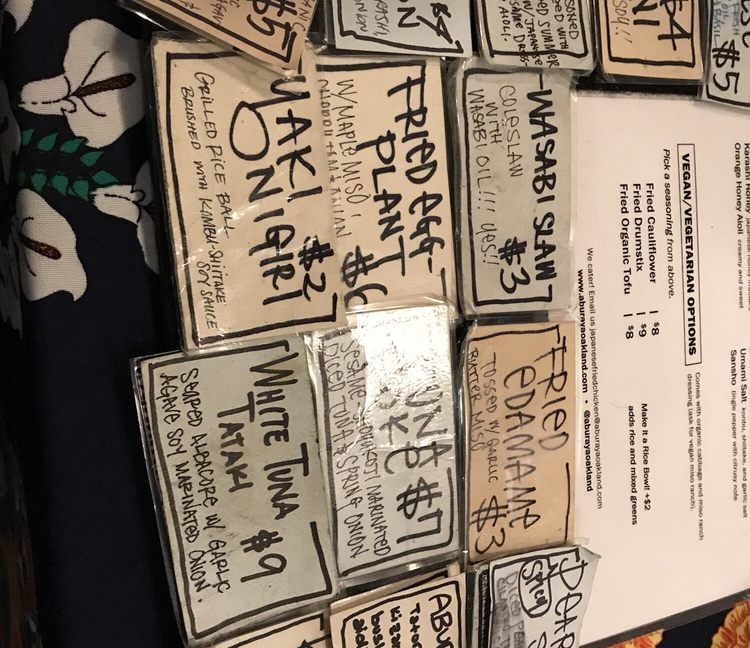 $5
ON
$4
NI
$5
YAKI
ONIGIRI
$2
GRILLED RICE BALL
BRUSHED WITH KOMBU-SHIITAKE
SOY SAUCE
FRIED EGG-
PLANT
$6
W/MAPLE MISO,
WASABI SLAW
COLESLAW
WITH
WASABI OIL!!! YES!!
$3
WHITE TUNA
TATAKI
$9
SEARED ALBACORE W/ GARLIC
AGAVE SOY MARINATED ONION.
TUNA
POKE $7
MARINATED
DICED TUNA & SPRING ONION
FRIED
EDAMAME
TOSSED W/ GARLIC
BUTTER MISO
$3
SPICY
Karashi Honey
Orange Honey Aioli creamy and sweet
Umami Salt kombu, shiitake, and garlic salt
Sansho tingle pepper with citrusy note
VEGAN/VEGETARIAN OPTIONS
Comes with organic cabbage and miso ranch
dressing (ask for vegan miso ranch).
Pick a seasoning from above.
Fried Cauliflower $8
Fried Drumstix $9
Fried Organic Tofu $8
Make it a Rice Bowl! +$2
adds rice and mixed greens
We cater! Email us japanesefriedchicken@aburayaoakland.com
www.aburayaoakland.com • @aburayaoakland